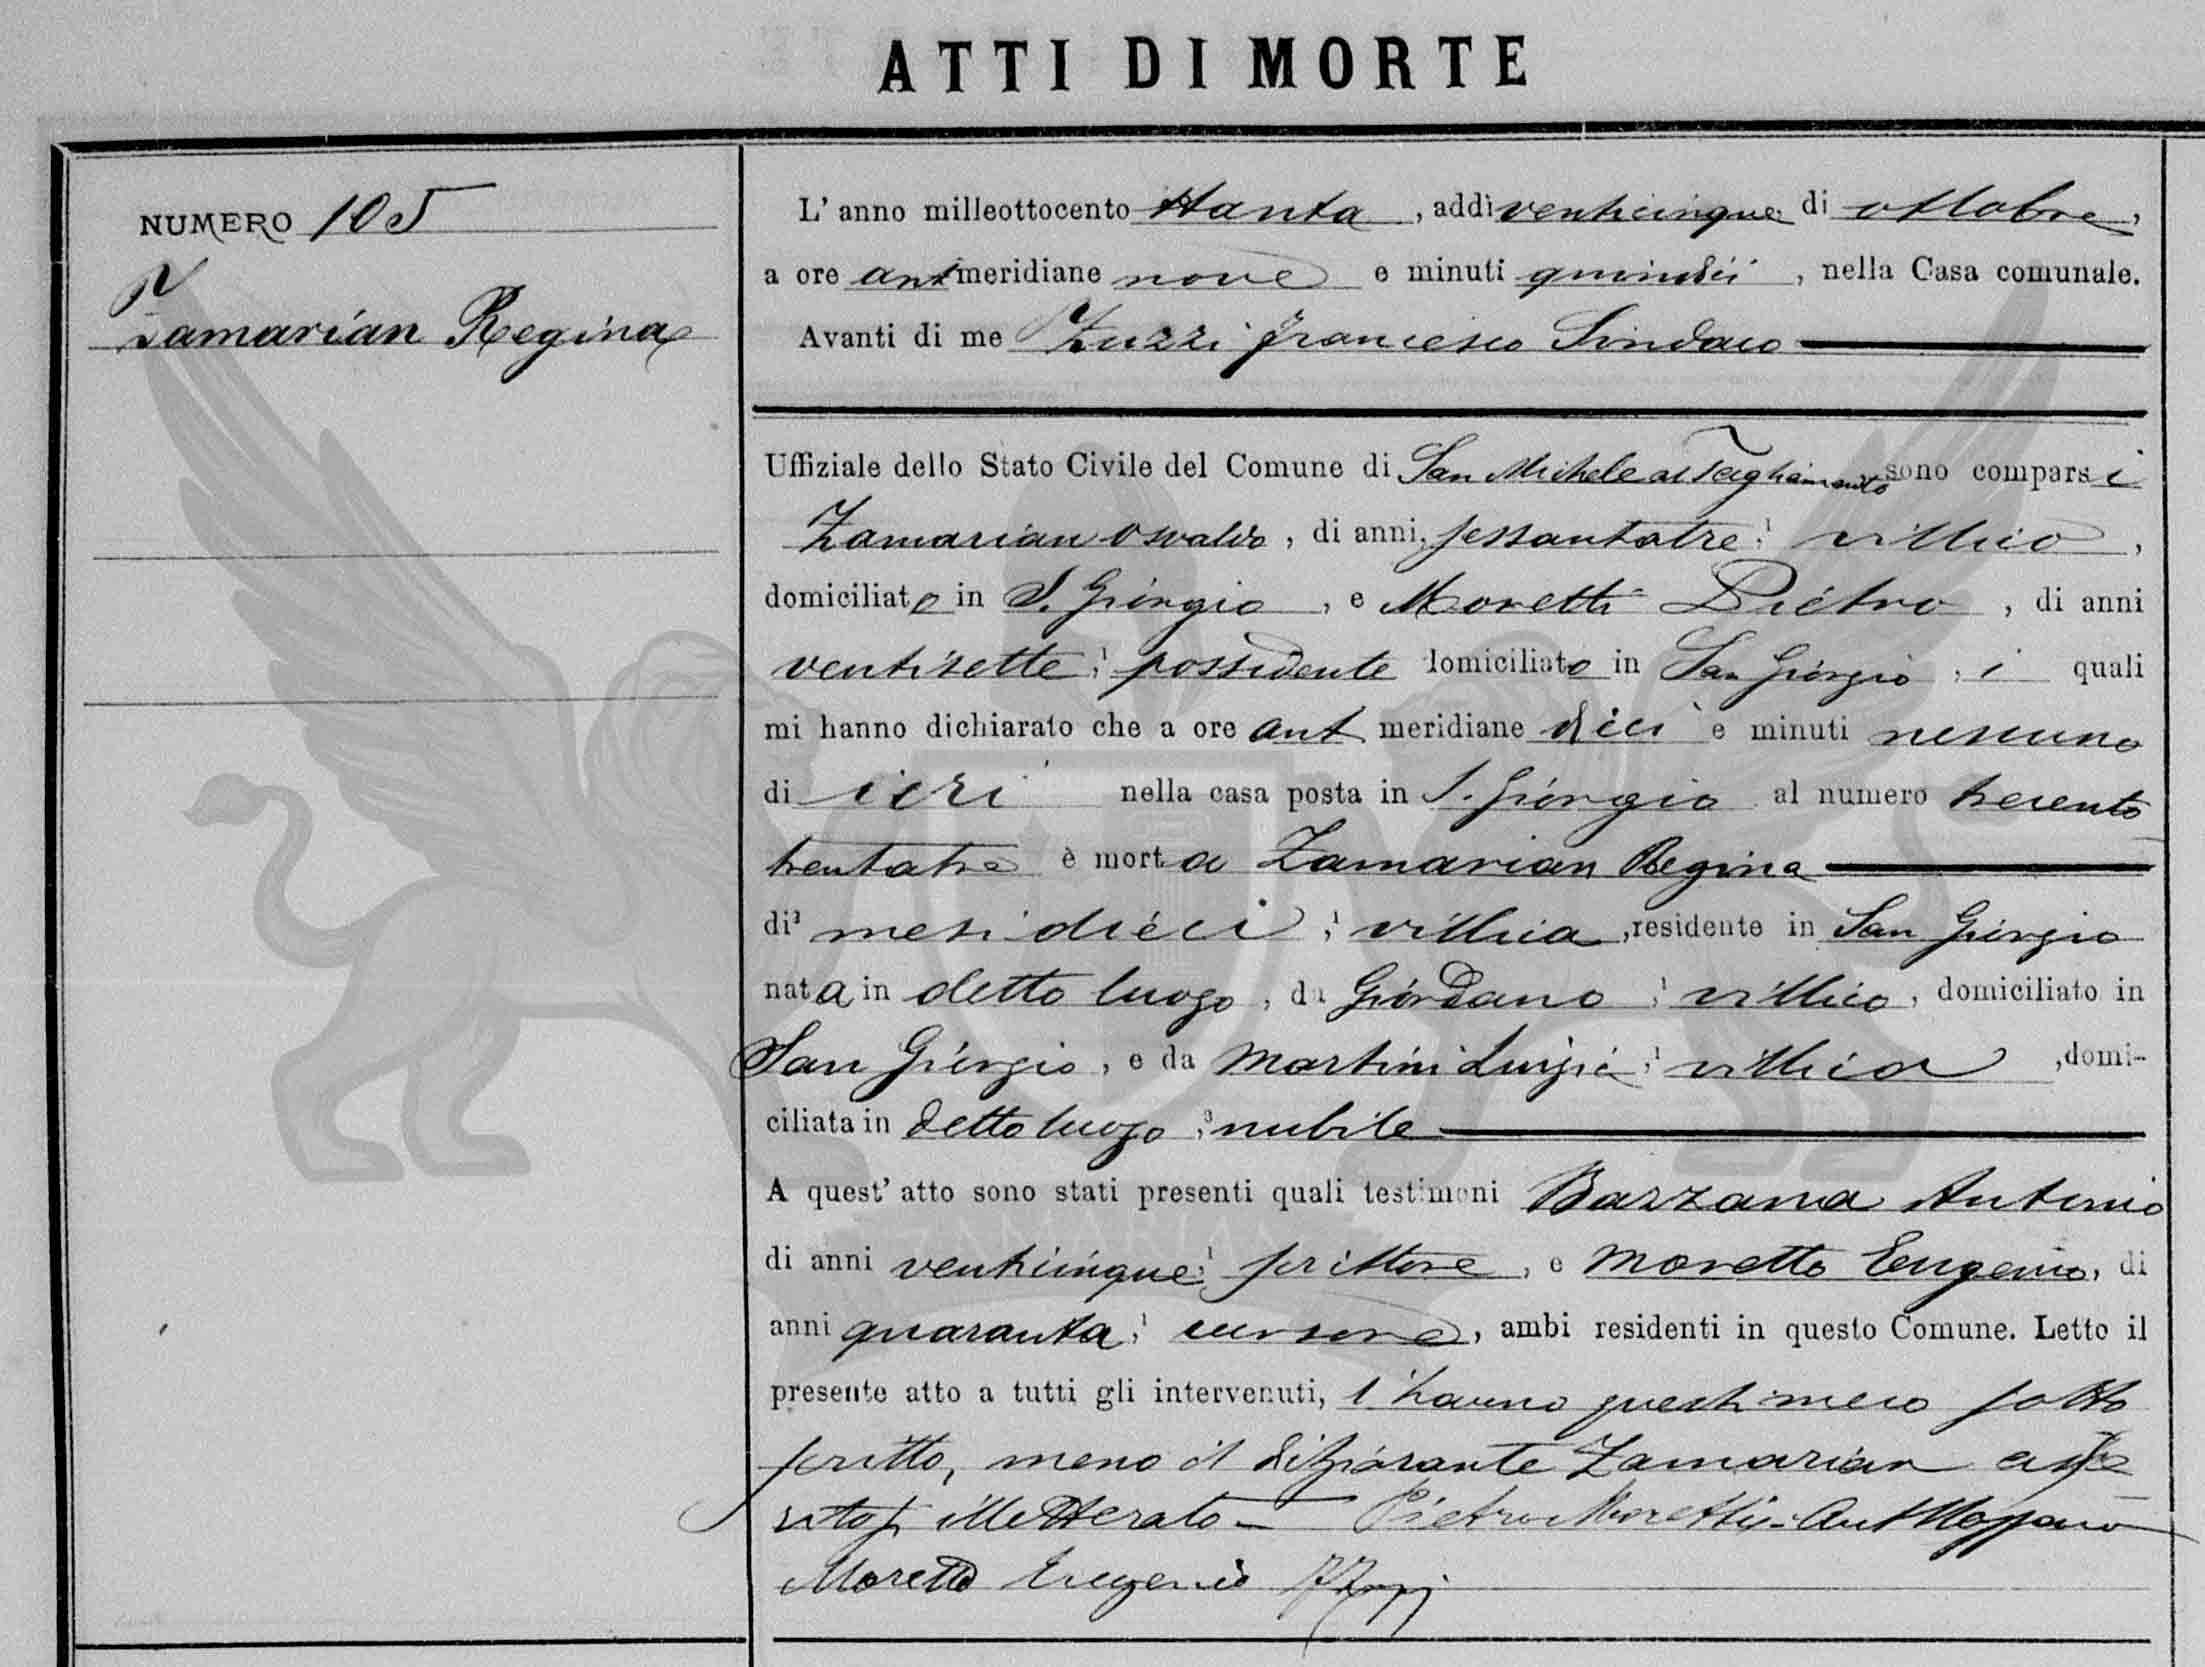 ATTI DI MORTE
NUMERO 105
Zamarian Regina
L' anno milleottocento ottanta, addì venticinque di ottobre,
a ore antmeridiane nove e minuti quindici, nella Casa comunale.
Avanti di me Zuzzi Francesco Sindaco
Uffiziale dello Stato Civile del Comune di San Michele al Tagliamento sono comparsi
Zamarian Osvaldo, di anni sessantatre, villico,
domiciliato in S. Giorgio, e Moretti Pietro, di anni
ventisette, possidente domiciliato in San Giorgio, i quali
mi hanno dichiarato che a ore ant meridiane dieci e minuti nessuno
di ieri nella casa posta in S. Giorgio al numero trecento
trentatre è morta Zamarian Regina
di mesi dieci, villica, residente in San Giorgio
nata in detto luogo, da Giordano, villico, domiciliato in
San Giorgio, e da Martini Luigia, villica, domi-
ciliata in detto luogo, nubile
A quest' atto sono stati presenti quali testimoni Antonio
di anni venticinque, scrittore, e Moretto Eugenio, di
anni quaranta, cursore, ambi residenti in questo Comune. Letto il
presente atto a tutti gli intervenuti, l'hanno questi meco sotto
scritto, meno il dichiarante Zamarian
illetterato - Pietro Moretti - Ant
Moretto Eugenio FZuzzi